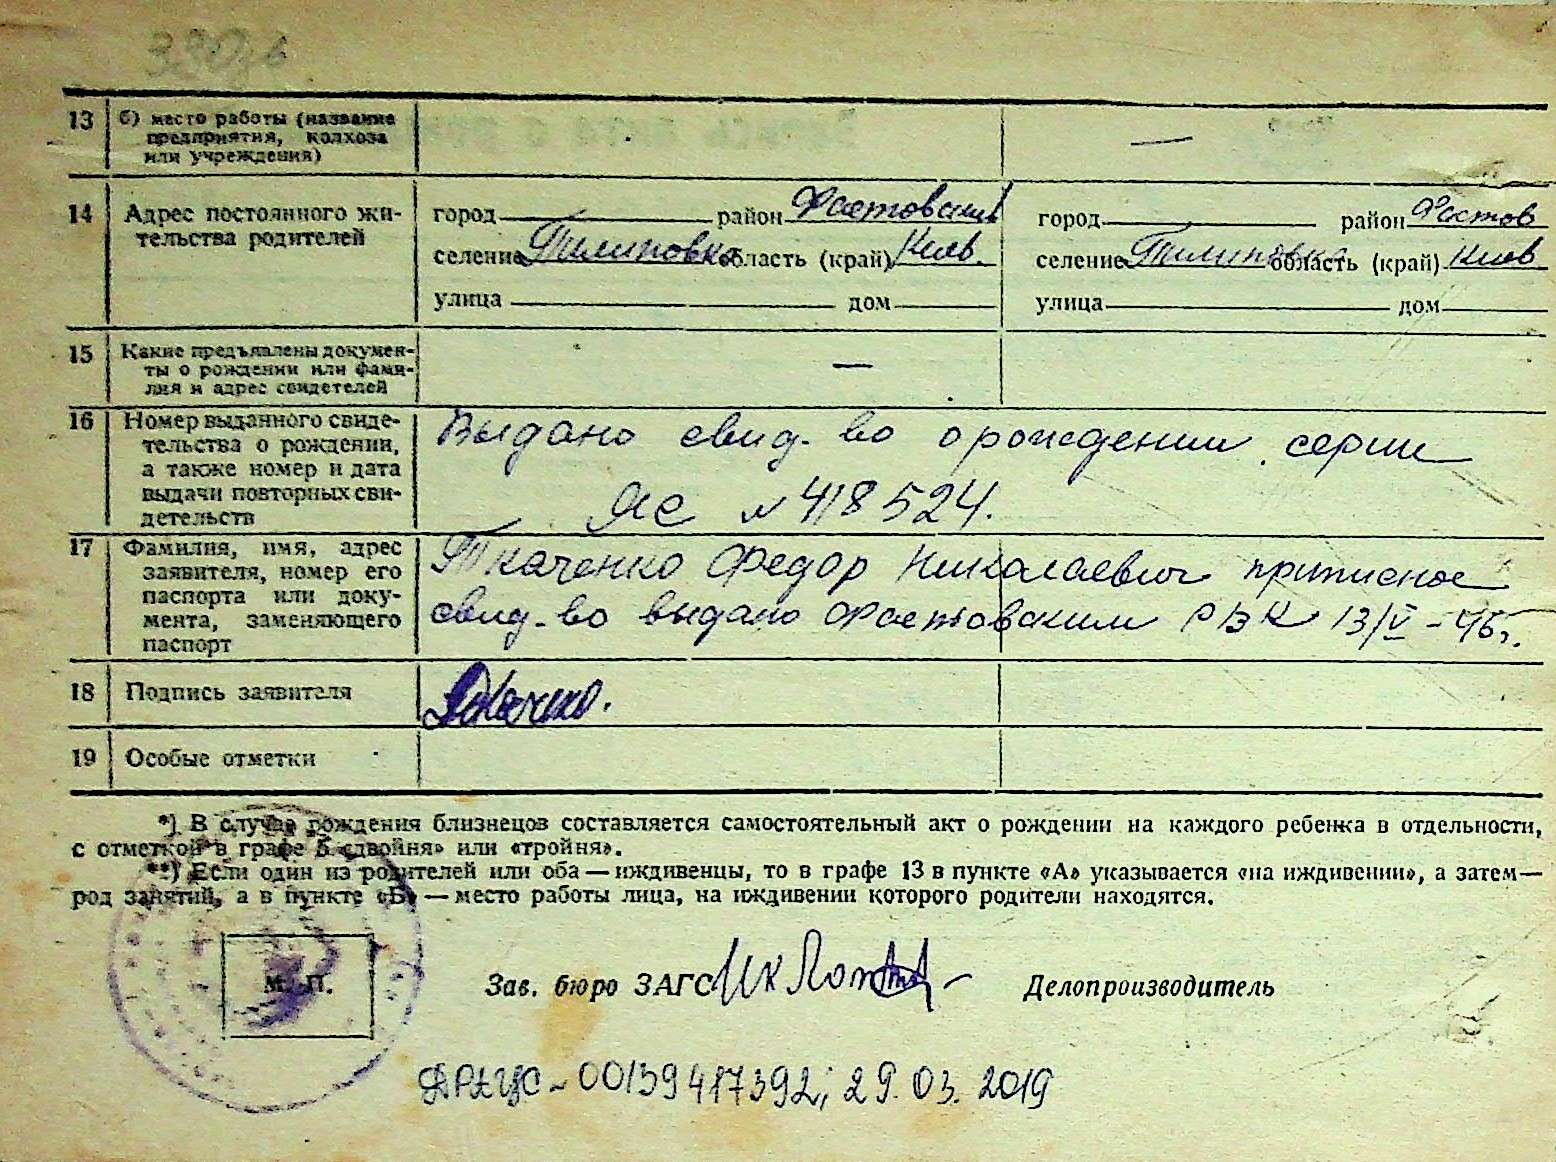 13 б) место работы (название
предприятия, колхоза
или учреждения) —
14 Адрес постоянного жи-
тельства родителей
город район Фастовский город район Фастов
селение Пилиповка область (край) Киев. селение Пилиповка область (край) Киев
улица дом улица дом
15 Какие предъявлены докумен-
ты о рождении или фами-
лия и адрес свидетелей —
16 Номер выданного свиде-
тельства о рождении,
а также номер и дата
выдачи повторных сви-
детельств
Выдано свид-во о рождении серии
ЯС № 418524.
17 Фамилия, имя, адрес
заявителя, номер его
паспорта или доку-
мента, заменяющего
паспорт
Ткаченко Федор Николаевич приписное
свид-во выдано Фастовским РВК 13/V-
18 Подпись заявителя Ткаченко.
19 Особые отметки
*) В случае рождения близнецов составляется самостоятельный акт о рождении на каждого ребенка в отдельности,
с отметкой в графе 5 «двойня» или «тройня».
**) Если один из родителей или оба — иждивенцы, то в графе 13 в пункте «А» указывается «на иждивении», а затем —
род занятий, а в пункте «Б» — место работы лица, на иждивении которого родители находятся.
М. П. Зав. бюро ЗАГС Делопроизводитель
ДРАЦС-00139417392; 29.03.2019